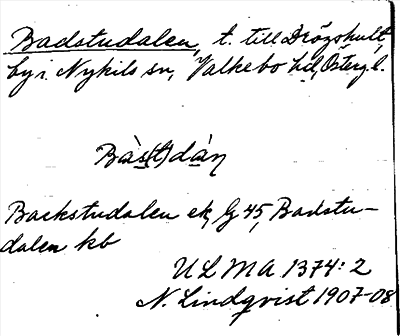 Badstudalen, t. till Drögshult,
by i Nykils sn, Valkebo hd, Österg. l.
Bàs(t)dán
Backstudalen ek, G 45, Badstu-
dalen kb
ULMA 1374:2
N. Lindqvist 1907-08